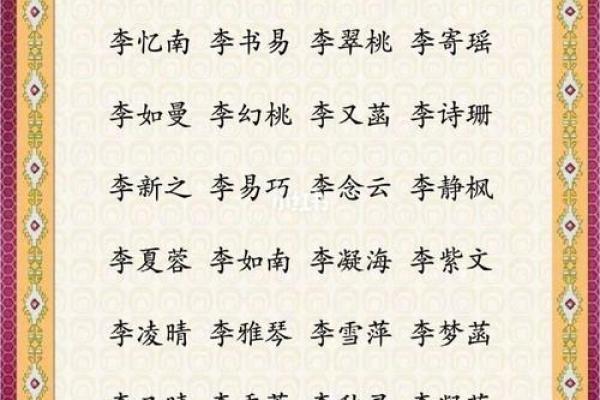 李忆南 李书易 李翠桃 李寄瑶
李如曼 李幻桃 李又菡 李诗珊
李新之 李易巧 李念云 李静枫
李夏蓉 李如南 李凝海 李紫文
李凌晴 李雅琴 李雪萍 李梦菡